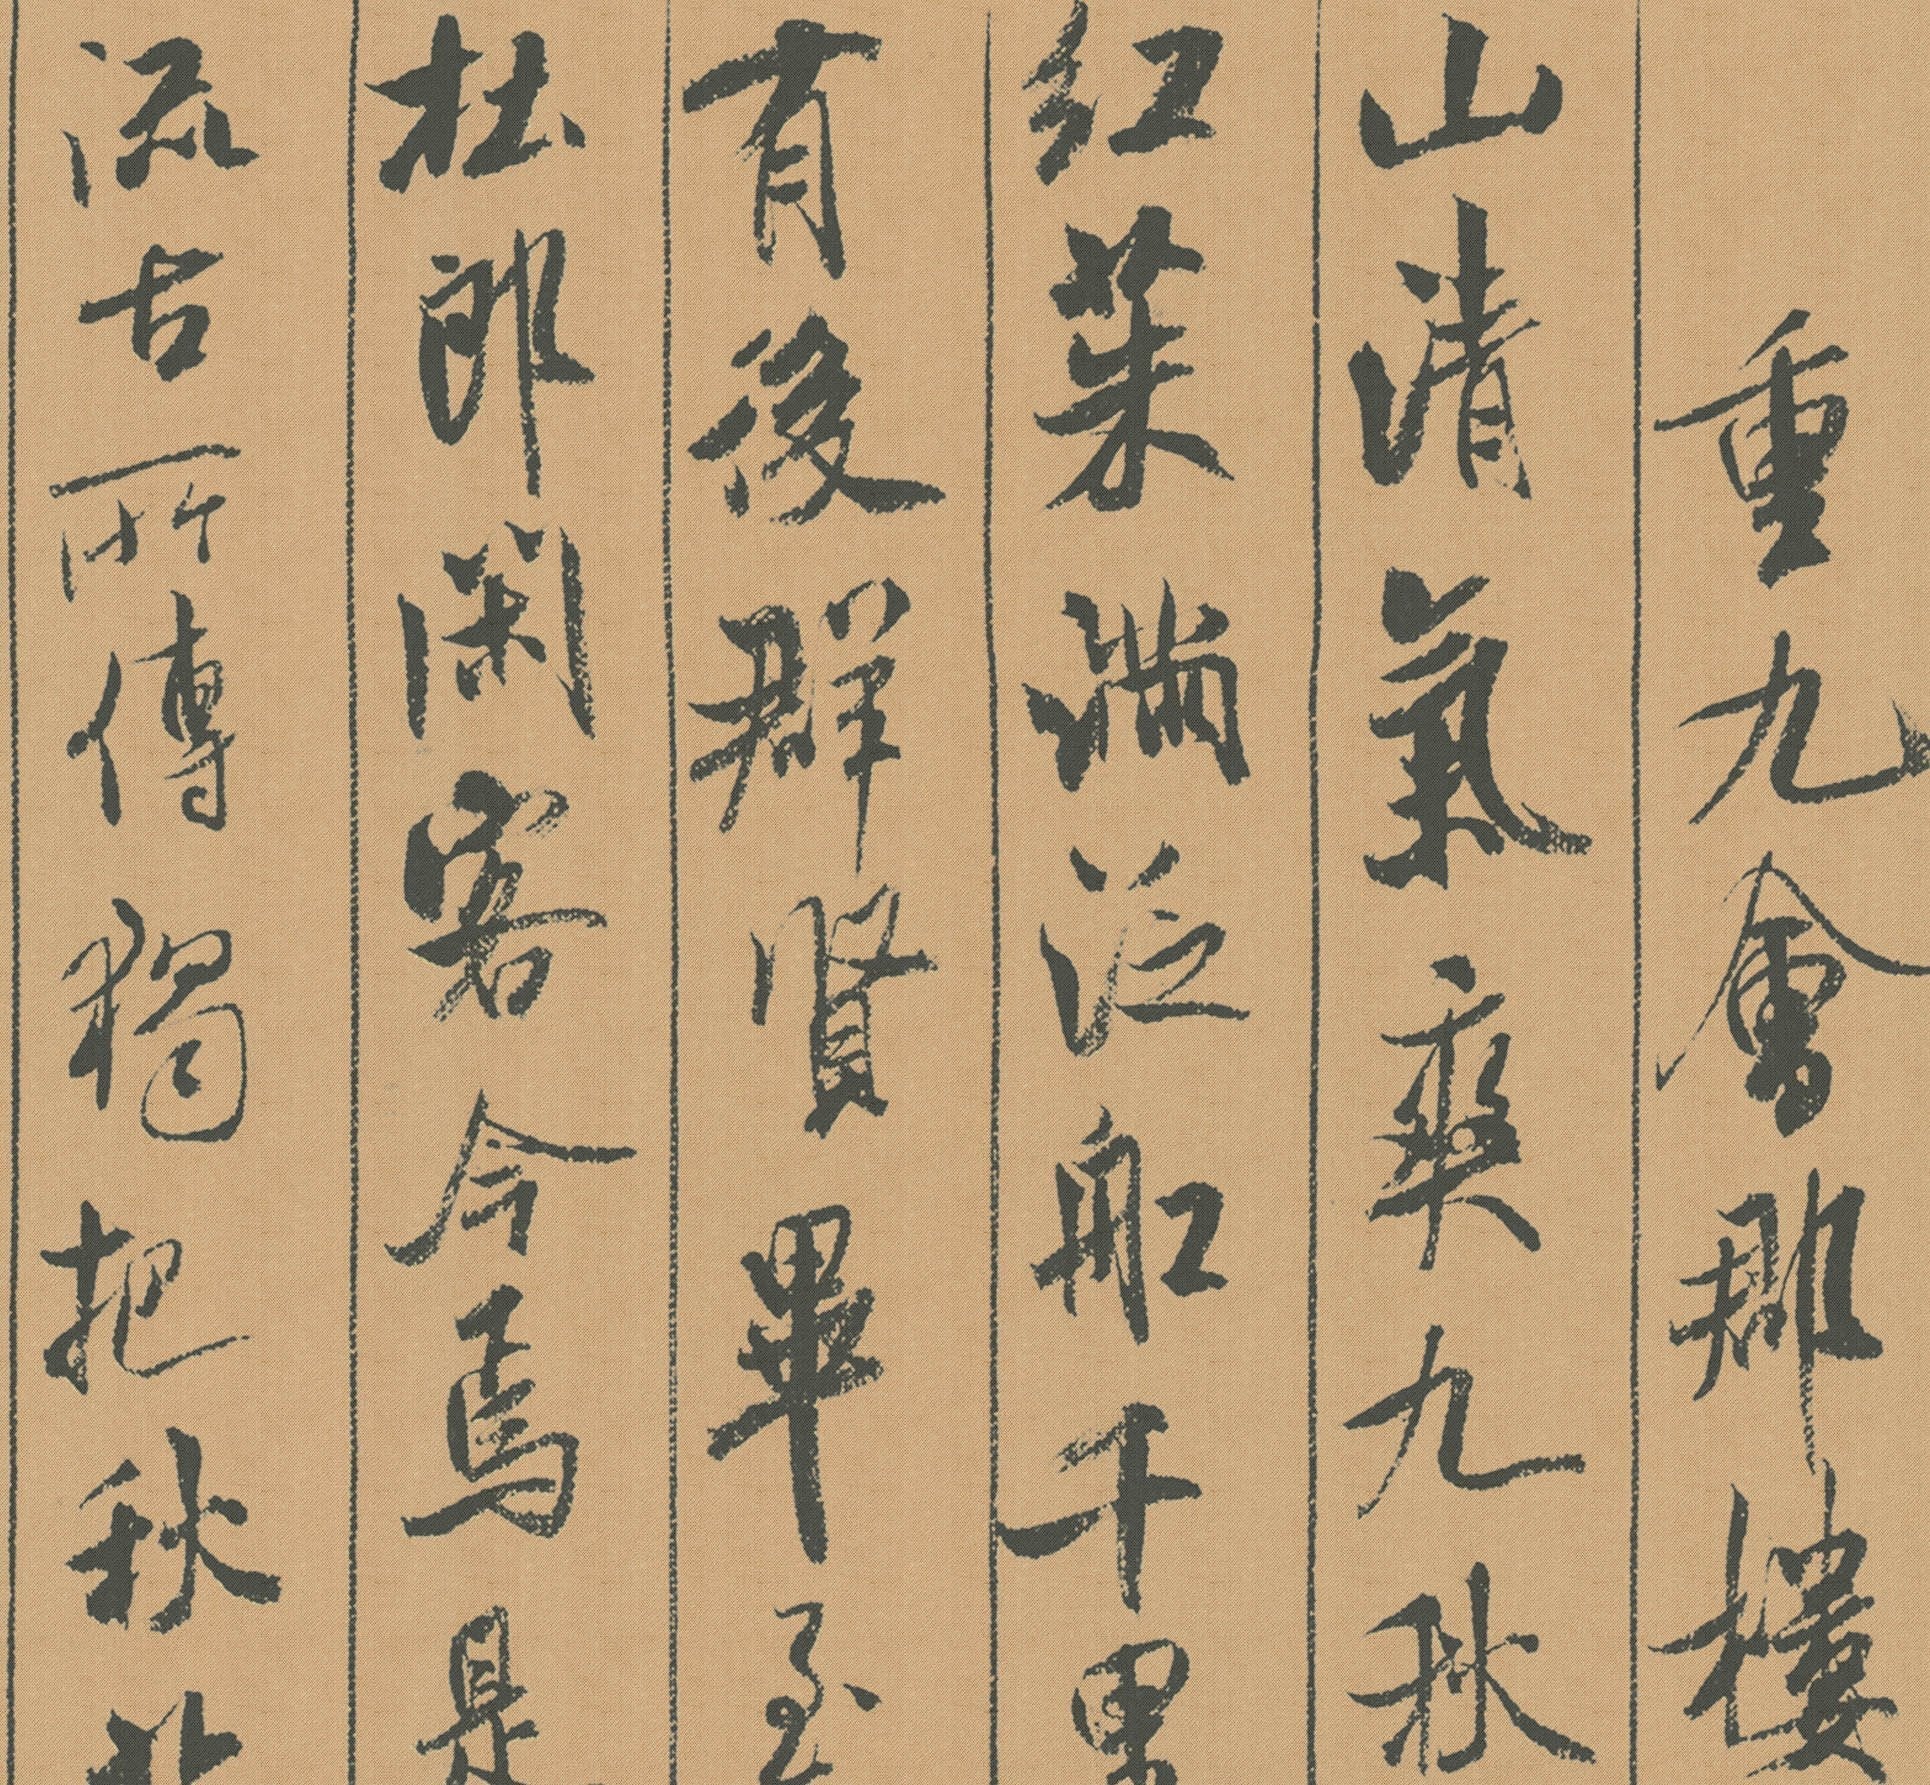 重九會郡樓
山清氣爽九秋
紅茱滿泛船千里
有後群賢畢至
杜郎閑客今焉是
流古所傳獨把秋